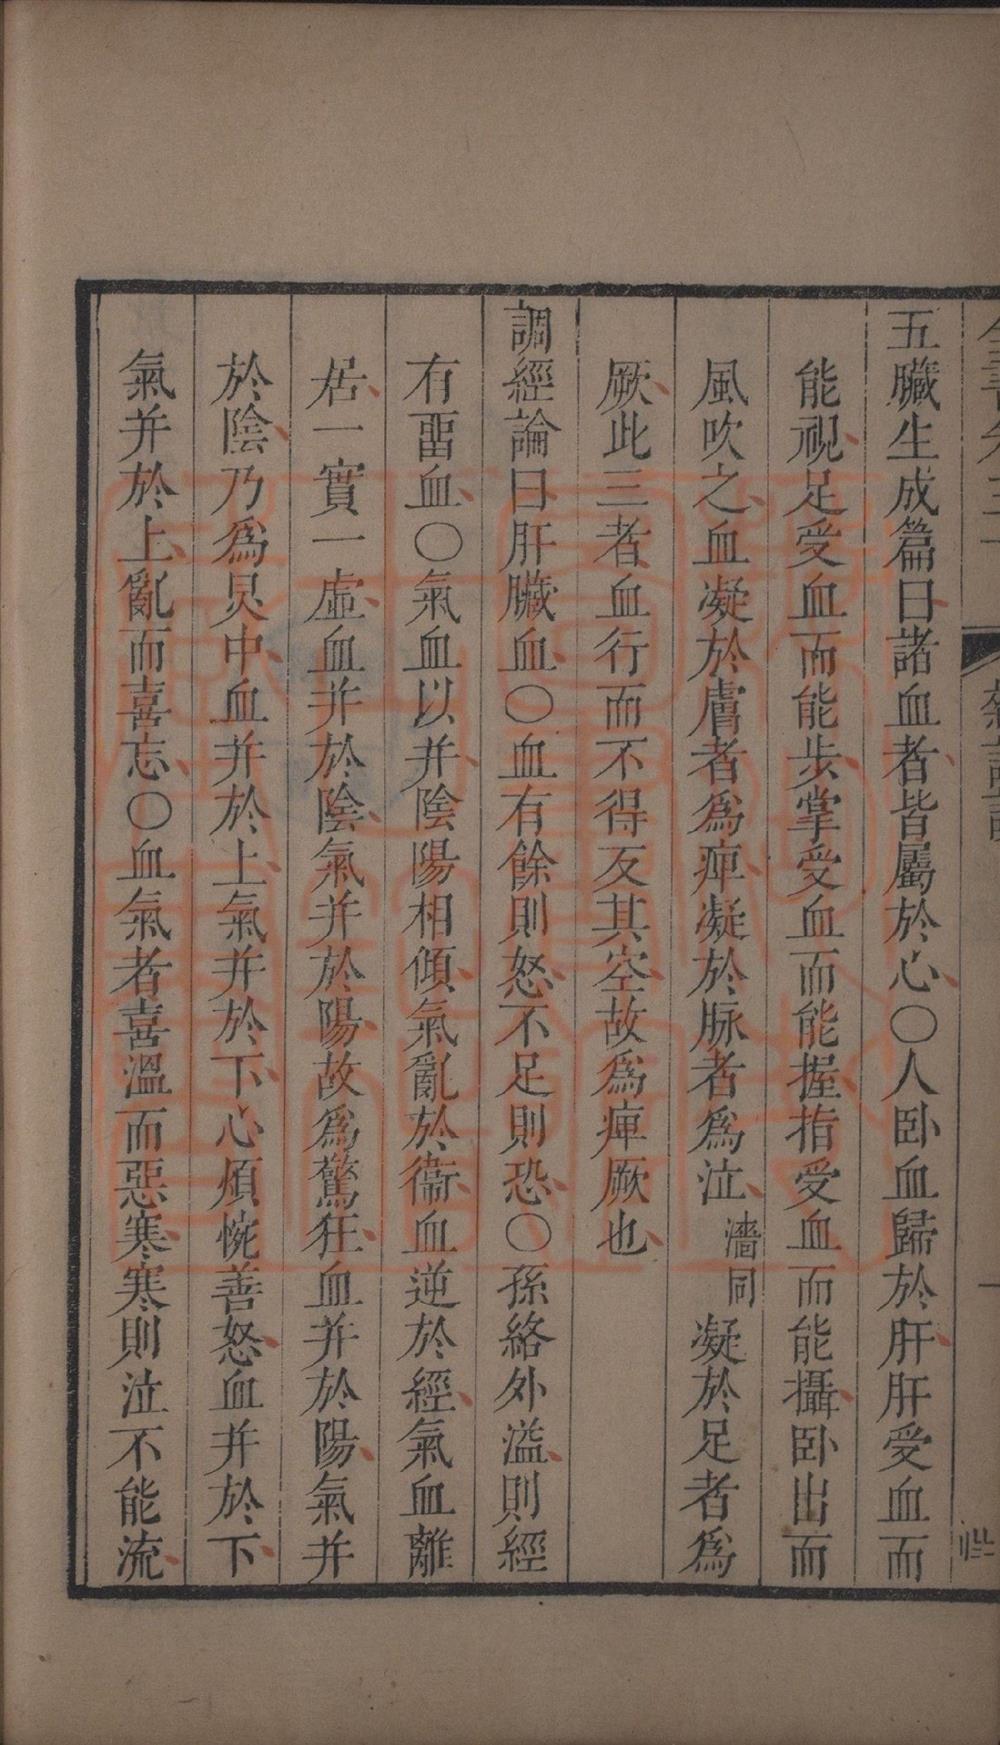 五臟生成篇曰諸血者皆屬於心〇人卧血歸於肝肝受血而
能視足受血而能步掌受血而能握指受血而能攝卧出而
風吹之血凝於膚者爲痺凝於脉者爲泣濇同凝於足者爲
厥此三者血行而不得反其空故爲痺厥也
調經論曰肝臟血〇血有餘則怒不足則恐〇孫絡外溢則經
有畱血〇氣血以并陰陽相傾氣亂於衞血逆於經氣血離
居一實一虛血并於陰氣并於陽故爲驚狂血并於陽氣并
於陰乃爲炅中血并於上氣并於下心煩惋善怒血并於下
氣并於上亂而喜忘〇血氣者喜溫而惡寒寒則泣不能流